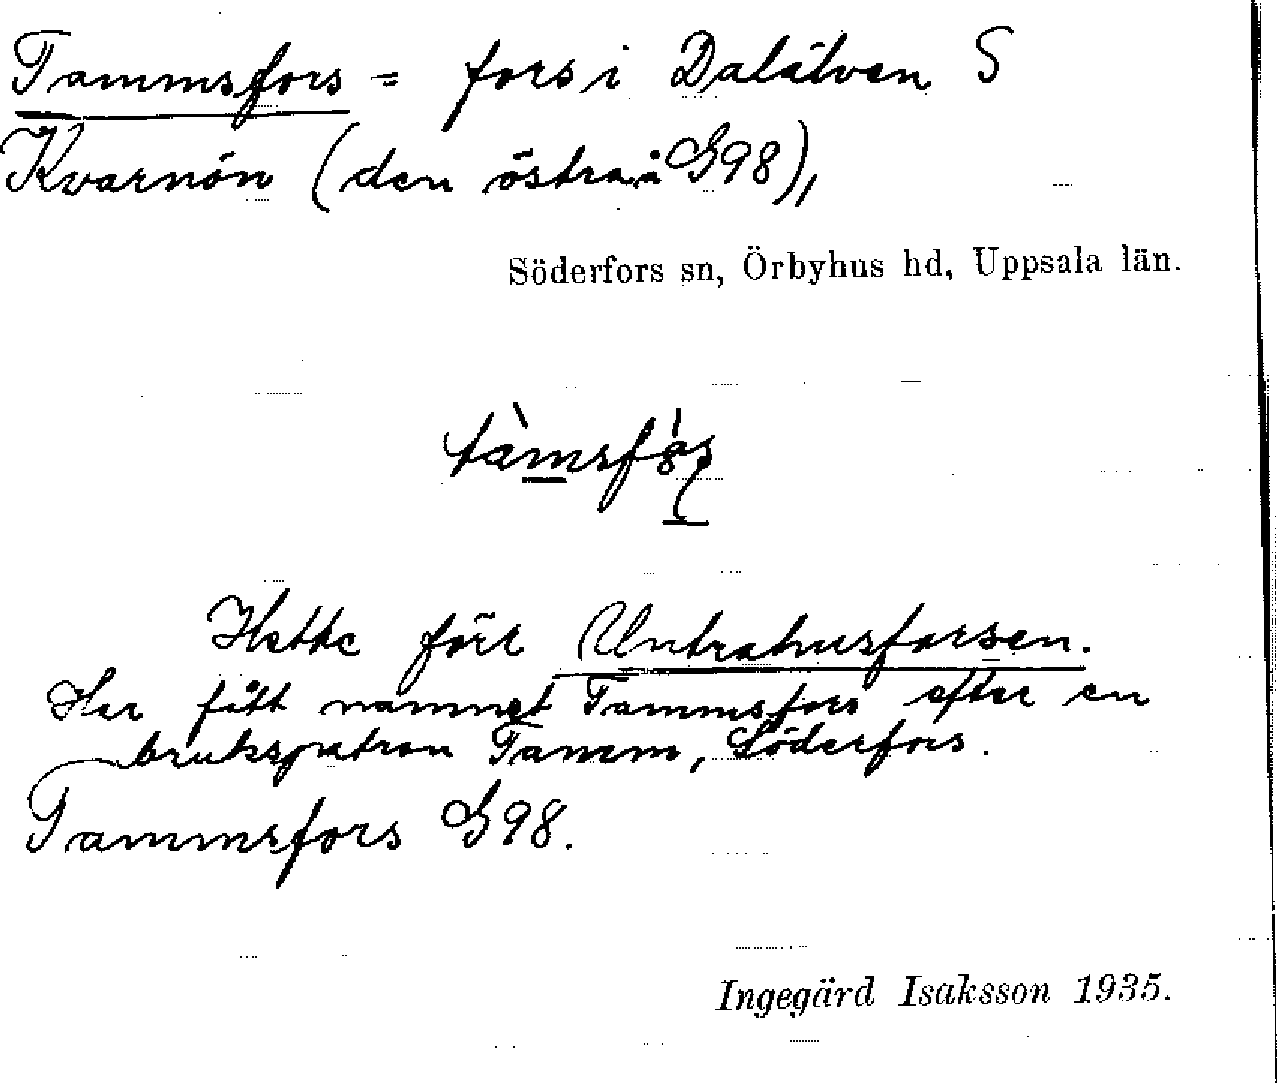 Tammsfors = fors i Dalälven S
Kvarnön (den östra å G98),
Söderfors sn, Örbyhus hd, Uppsala län.
Hette förr Untrahusforsen.
Har fått namnet Tammsfors efter en
brukspatron Tamm, Söderfors.
Tammsfors G98.
Ingegärd Isaksson 1935.